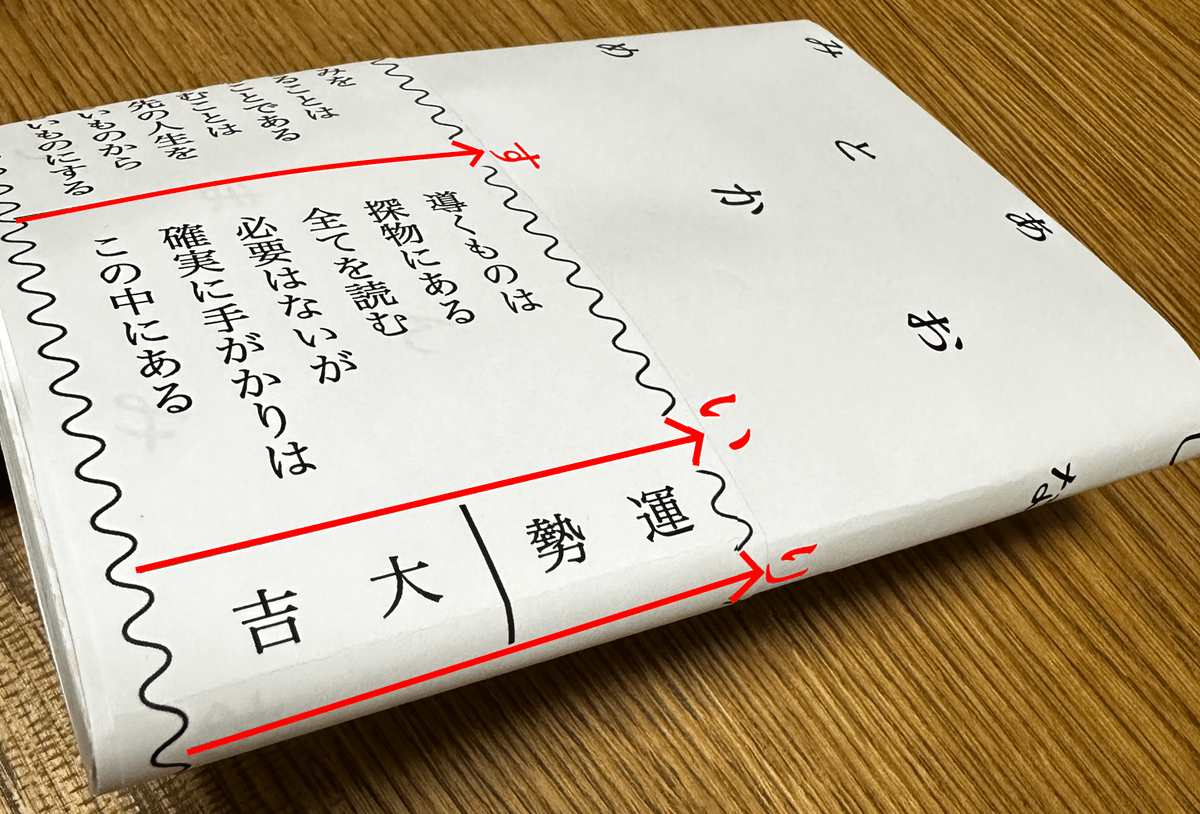 みを
ることは
ことである
むことは
先の人生を
いものから
いものにする
す
導くものは
探物にある
全てを読む
必要はないが
確実に手がかりは
この中にある
い
運勢
大吉
り
め
み
と
か
あ
お
な